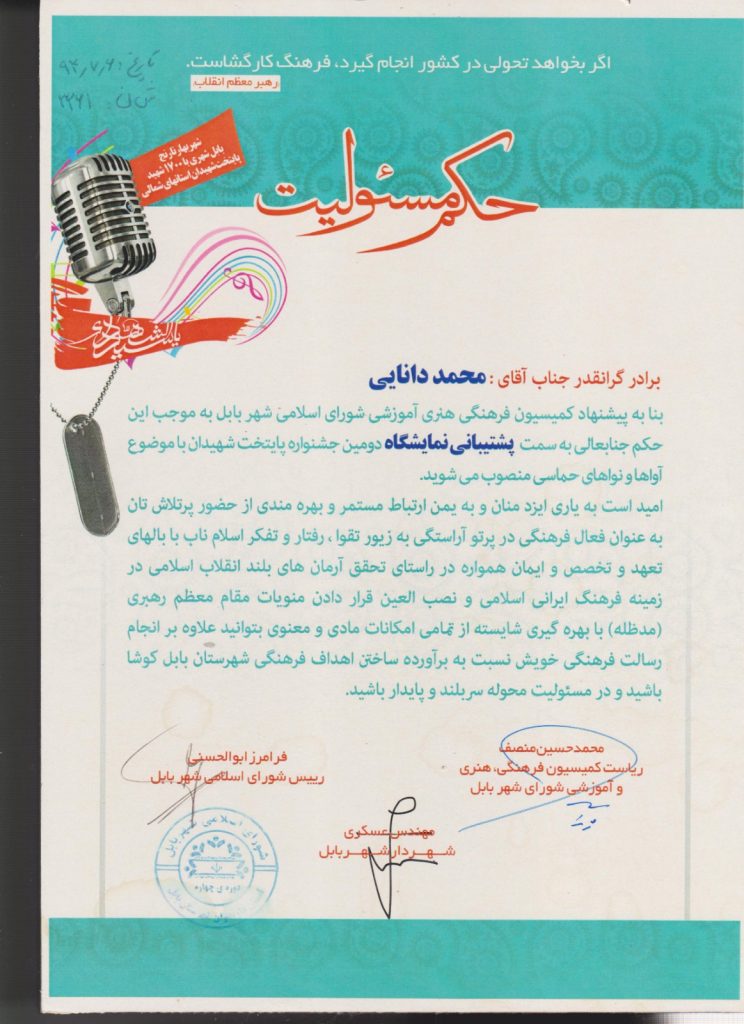 اگر بخواهد تحولی در کشور انجام گیرد، فرهنگ کارگشاست.
رهبر معظم انقلاب
تاریخ: ۹۴،۷،۶
ش ن: ۲۲۶۱
شهر بهار نارنج
بابل شهری با ۱۷۰۰ شهید
پایتخت شهیدان استانهای شمالی
حکم مسئولیت
برادر گرانقدر جناب آقای : محمد دانایی
بنا به پیشنهاد کمیسیون فرهنگی هنری آموزشی شورای اسلامی شهر بابل به موجب این
حکم جنابعالی به سمت پشتیبانی نمایشگاه دومین جشنواره پایتخت شهیدان با موضوع
آواها و نواهای حماسی منصوب می شوید.
امید است به یاری ایزد منان و به یمن ارتباط مستمر و بهره مندی از حضور پرتلاش تان
به عنوان فعال فرهنگی در پرتو آراستگی به زیور تقوا ، رفتار و تفکر اسلام ناب با بالهای
تعهد و تخصص و ایمان همواره در راستای تحقق آرمان های بلند انقلاب اسلامی در
زمینه فرهنگ ایرانی اسلامی و نصب العین قرار دادن منویات مقام معظم رهبری
(مدظله) با بهره گیری شایسته از تمامی امکانات مادی و معنوی بتوانید علاوه بر انجام
رسالت فرهنگی خویش نسبت به برآورده ساختن اهداف فرهنگی شهرستان بابل کوشا
باشید و در مسئولیت محوله سربلند و پایدار باشید.
محمدحسین منصف
ریاست کمیسیون فرهنگی، هنری
و آموزشی شورای شهر بابل
فرامرز ابوالحسنی
رییس شورای اسلامی شهر بابل
مهندس عسکری
شهردار شهر بابل
شورای اسلامی شهر بابل
دوره ی چهارم